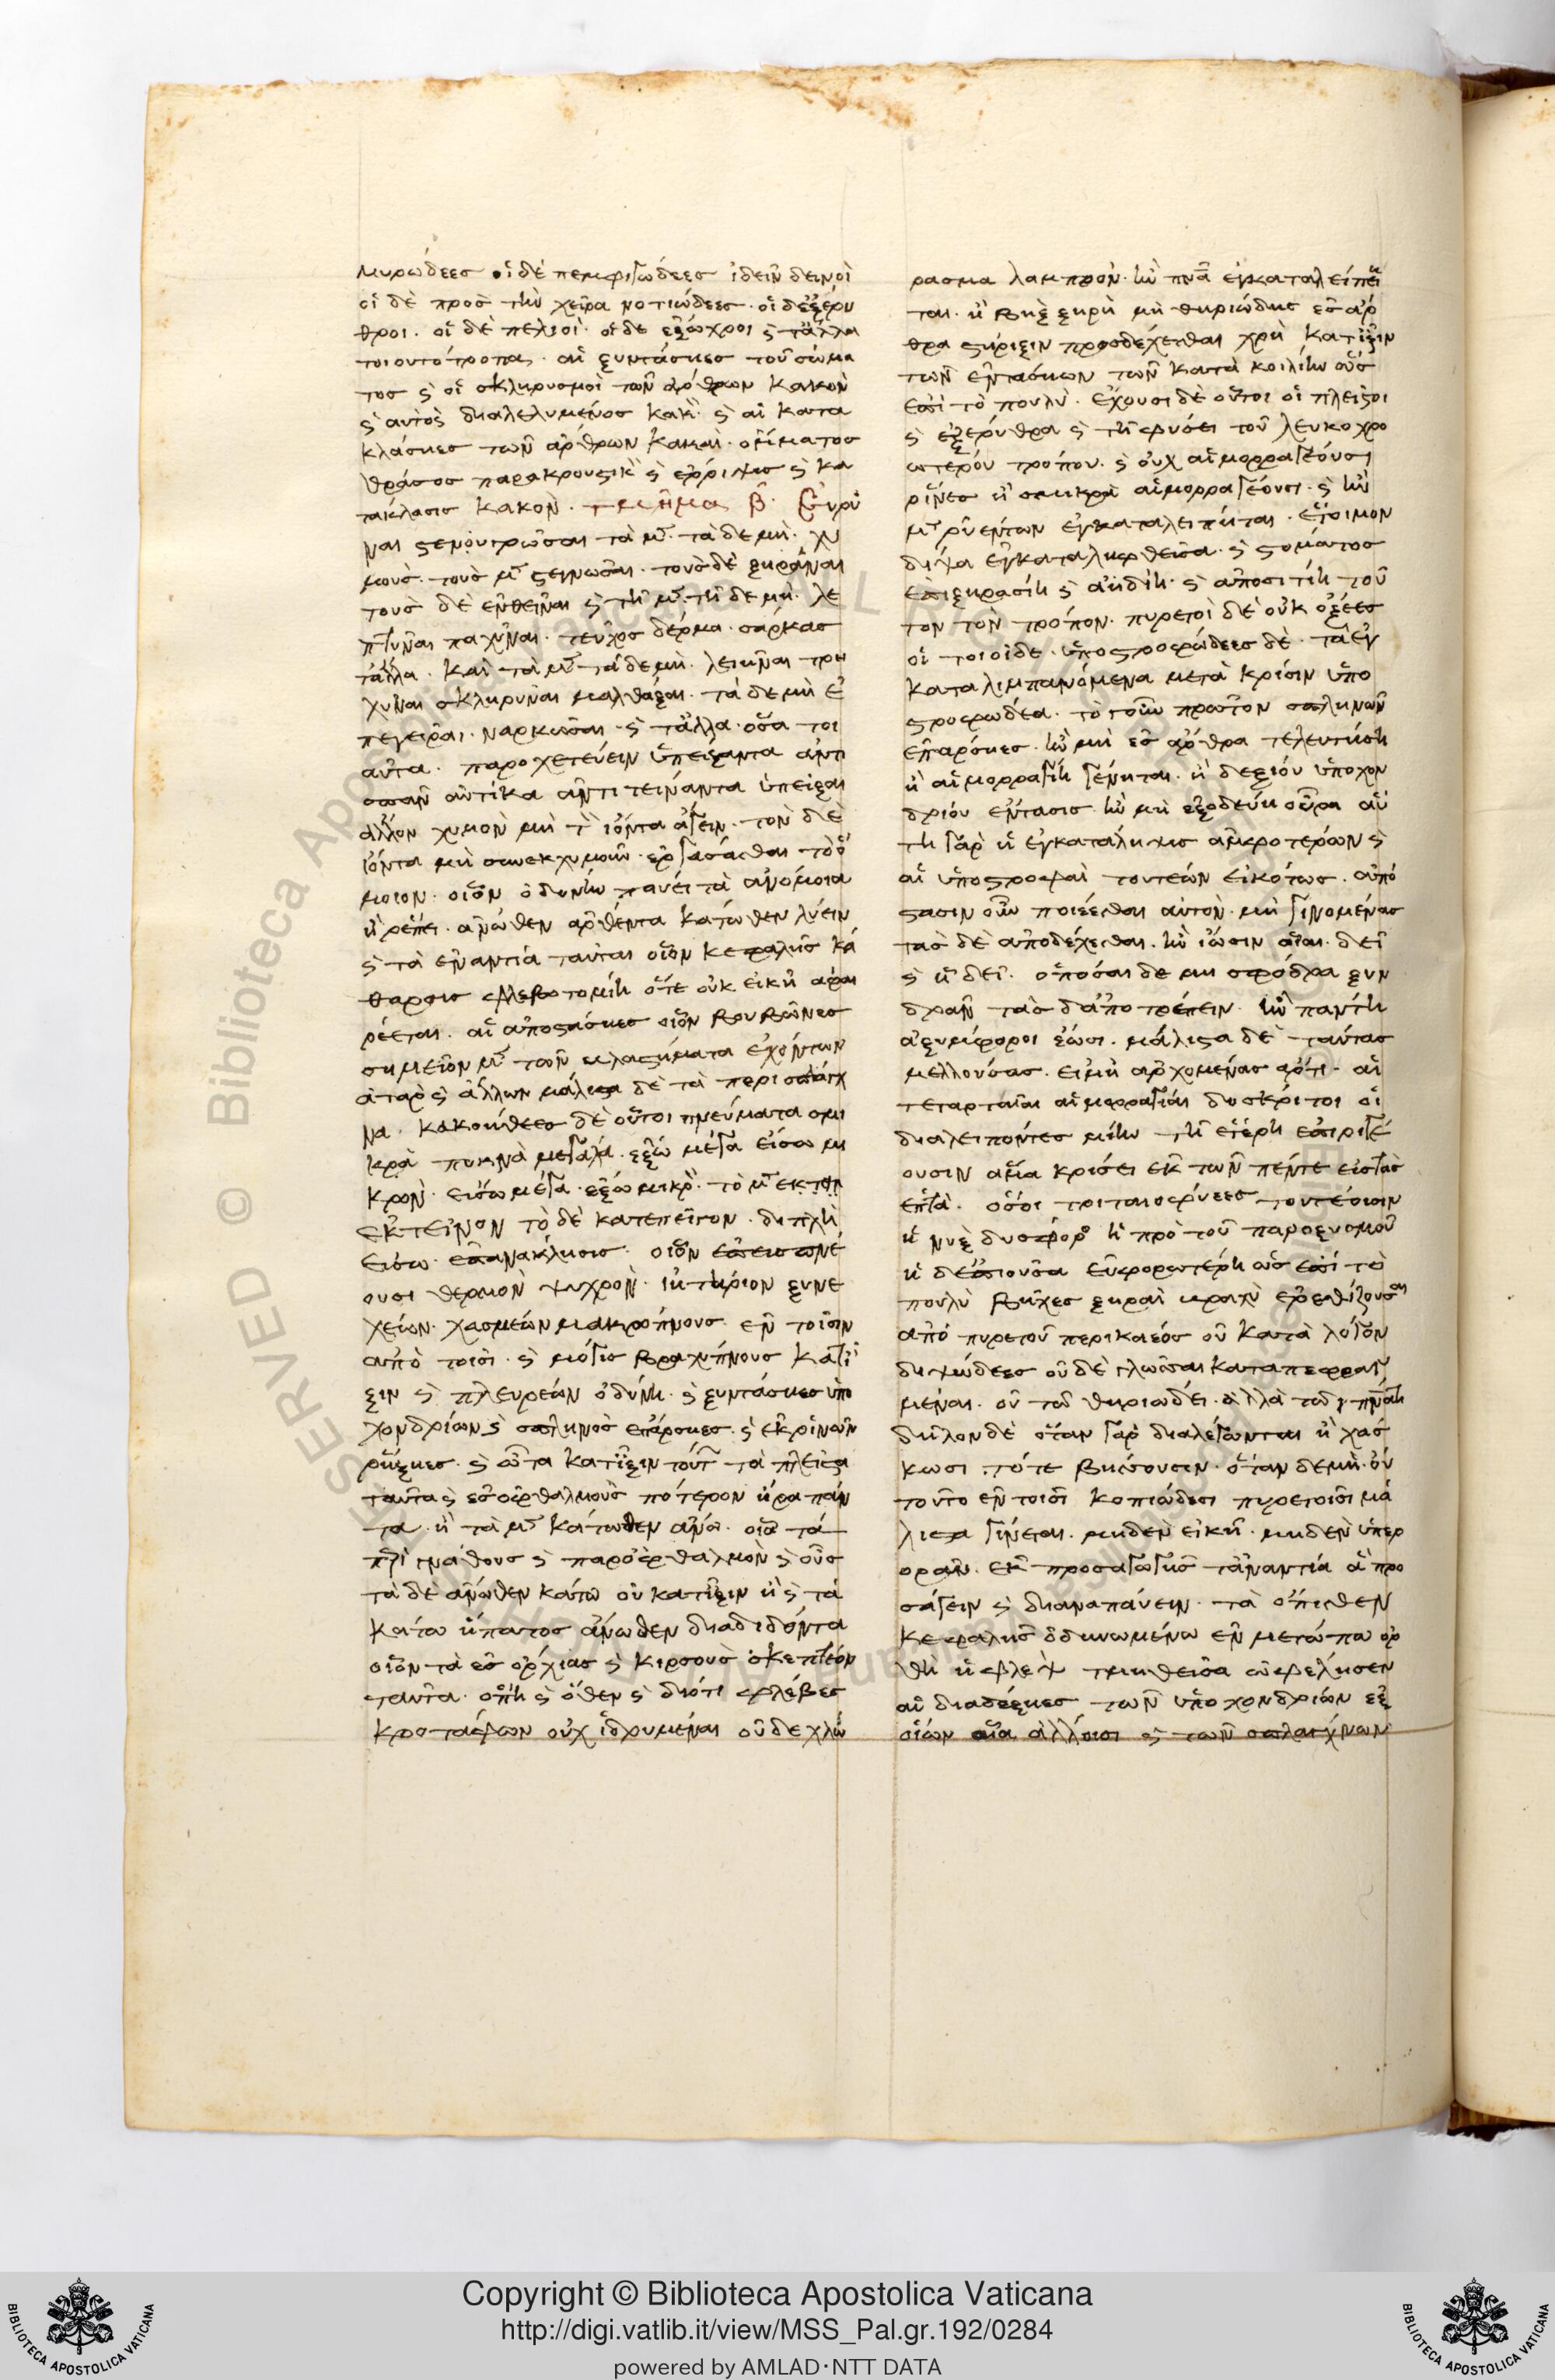 μυρώδεες. οἱ δὲ πεμφιγώδεες ἰδεῖν δεινοὶ
οἱ δὲ πρὸς τὴν χεῖρα νοτιώδεες. οἱ δὲ ἐξέρυ
θροι. οἱ δὲ πελιοὶ. οἱ δὲ ἐξώχροι ϛ τἆλλα
τοιουτότροπα. αἱ ξυντάσιες τοῦ σώμα
τος ϛ οἱ σκληρυσμοὶ τῶν ἄρθρων κακὸν
ϛ αὐτὸς διαλελυμένος κακὸ. ϛ αἱ κατα
κλάσιες τῶν ἄρθρων κακαὶ. ὄμματος
θράσος παρακρουστικὸ ϛ ἔρριψις ϛ κα
τάκλασις κακὸν. τμῆμα β. Εὐρῦ
ναι στενυγρῶσαι τὰ μὲν. τὰ δὲ μὴ. χυ
μοὺς. τοὺς μὲν στεγνῶσαι. τοὺς δὲ ξηρᾶναι
τοὺς δὲ ἐνθεῖναι ϛ τῆ μὲν. τῆ δὲ μὴ. λε
πτῦναι παχῦναι. τεῦχος δέρμα. σάρκας
τἆλλα. καὶ τὰ μὲν τὰ δὲ μὴ. λειῆναι τρη
χῦναι σκληρῦναι μαλθάξαι. τὰ δὲ μὴ ἐ
πεγεῖραι. ναρκῶσαι. ϛ τἆλλα. ὅσα τοι
αῦτα. παροχετεύειν ὑπείξαντα ἀντι
σπᾶν αὐτίκα ἀντιτείναντα ὑπείξαι
ἄλλον χυμὸν μὴ τὸ ἰόντα ἄγειν. τὸν δὲ
ἰόντα μὴ συνεκχυμοῦν. ἐργάσασθαι τὸ ὅ
μοιον. οἷον ὀδυνὴν παύει τὰ ἀνόμοια
ἢ ῥέπει. ἄνωθεν ἀρθέντα κάτωθεν λύειν
ϛ τὰ ἐναντία ταῦτα οἷον κεφαλῆς κά
θαρσις φλεβοτομίη ὅτε οὐκ εἰκῆ ἀφαι
ρέεται. αἱ ἀποστάσιες οἷον βουβῶνες
σημεῖον μὲν τῶν βλαστήματα ἐχόντων
ἀτὰρ ϛ ἄλλων μάλιστα δὲ τὰ περὶ σπλάγχ
να. κακοήθεες δὲ οὗτοι πνεύματα σμι
κρὰ πυκνὰ μεγάλα. ἔξω μέγα εἴσω μι
κρὸν. εἴσω μέγα. ἔξω μικρὸ. τὸ μὲν ἐκτει
ἐκτεῖνον τὸ δὲ κατεπεῖγον. διπλῆ
εἴσω. ἐπανάκλησις. οἷον ἐπεισπνέ
ουσι θερμὸν ψυχρὸν. ἰητήριον ξυνε
χέων. χασμέων μακρόπνους. ἐν τοῖσιν
ἀπὸ τοισὶ. ϛ μόγις βραχύπνους κατί
ξιν ϛ πλευρέων ὀδύνη. ϛ ξυντάσιες ὑπο
χονδρίων ϛ σπληνὸς ἐπάρσιες. ϛ ἐκ ῥινῶν
ῥήξιες. ϛ ὦτα κατ᾽ ἴξιν τούτων τὰ πλεῖστα
ταῦτα ϛ ἐς ὀφθαλμοὺς πότερον ἄρα πάν
τα. ἢ τὰ μὲν κάτωθεν ἄνω. οἷα τὰ
περὶ γνάθους ϛ παρ᾽ ὀφθαλμὸν ϛ οὖς
τὰ δὲ ἄνωθεν κάτω οὐ κατίξιν ἢ ϛ τὰ
κάτω ἥπατος ἄνωθεν διαδιδόντα
οἷον τὰ ἐς ὄρχιας ϛ κιρσοὺς σκεπτέον
ταῦτα. ὅπη ϛ ὅθεν ϛ διότι φλέβες
κροτάφων οὐχ ἱδρυμέναι οὐδὲ χλώ
ρασμα λαμπρὸν. ἢν πνα ἐγκαταλείπη
ται. ἢ βὴξ ξηρὴ μὴ θηριώδης ἐς ἄρ
θρα στήριξιν προσδέχεσθαι χρὴ κατίξιν
τῶν ἐντασίων τῶν κατὰ κοιλίην ὡς
ἐπὶ τὸ πουλὺ. ἔχουσι δὲ οὗτοι οἱ πλεῖστοι
ϛ ἐξέρυθρα ϛ τῆ φύσει τοῦ λευκοχρο
ωτέρου τρόπον. ϛ οὐχ αἱμορραγέουσι
ῥῖνες ἢ σμικρὰ αἱμορραγέουσι. ϛ ἢν
μὲν ῥυέντων ἐγκαταλειπῆται. ἕτοιμον
δίψα ἐγκαταλειφθεῖσα. ϛ στόματος
ἐπιξηρασίη ϛ ἀηδίη. ϛ ἀποσιτίη τοῦ
τον τὸν τρόπον. πυρετοὶ δὲ οὐκ ὀξέες
οἱ τοιοίδε. ὑποστροφώδεες δὲ. τὰ ἐγ
καταλιμπανόμενα μετὰ κρίσιν ὑπο
στροφωδέα. τὸ γοῦν πρῶτον σπληνῶν
ἐπάρσιες. ἢν μὴ ἐς ἄρθρα τελευτήση
ἢ αἱμορραγίη γένηται. ἢ δεξιοῦ ὑποχον
δρίου ἔντασις ἢν μὴ ἐξοδεύη οὖρα αὕ
τη γὰρ ἡ ἐγκατάληψις ἀμφοτέρων ϛ
αἱ ὑποστροφαὶ τουτέων εἰκότως. ἀπό
στασιν οὖν ποιέεσθαι αὐτὸν. μὴ γινομένας
τὰς δὲ ἀποδέχεσθαι. ἢν ἴωσιν οἷαι. δεῖ
ϛ ἧ δεῖ. ὁπόσαι δὲ μὴ σφόδρα ξυν
δρᾶν τὰς δ᾽ ἀποτρέπειν. ἢν πάντη
ἀξύμφοροι ἔωσι. μάλιστα δὲ ταύτας
μελλούσας. εἰ μὴ ἀρχομένας ἄρτι. αἱ
τεταρταῖαι αἱμορραγίαι δύσκριτοι οἱ
διαλείποντες μίην τῆ ἑτέρη ἐπιριγέ
ουσιν ἅμα κρίσει ἐκ τῶν πέντε εἰς τὰς
ἑπτὰ. ὅσοι τριταιοφύεες τουτέοισιν
ἡ νὺξ δύσφορος ἡ πρὸ τοῦ παροξυσμοῦ
ἡ δ᾽ ἐπιοῦσα εὐφορωτέρη ὡς ἐπὶ τὸ
πουλὺ βῆχες ξηραὶ βραχὺ ἐρεθίζουσαι
ἀπὸ πυρετοῦ περικαέος οὐ κατὰ λόγον
διψώδεες οὐδὲ γλῶσσαι καταπεφρυγ
μέναι. οὐ τῶ θηριώδει. ἀλλὰ τῶ πνεύματι
δῆλον δὲ ὅταν γὰρ διαλέγωνται ἢ χάσ
κωσι. τότε βήσσουσιν. ὅταν δὲ μὴ. οὐ
τοῦτο ἐν τοισὶ κοπιώδεσι πυρετοῖσι μά
λιστα γίνεται. μηδὲν εἰκῆ. μηδὲν ὑπερ
ορᾶν. ἐκ προσαγωγῆς τἀναντία ἃ προ
σάγειν ϛ διαναπαύειν. τὰ ὄπισθεν
κεφαλῆς ὀδυνωμένω ἐν μετώπω ὀρ
θὴ ἡ φλὲψ τμηθεῖσα ὠφέλησεν
αἱ διαδέξιες τῶν ὑποχονδρίων ἐξ
οἵων οἷα ἀλλήοισι ϛ τῶν σπλάγχνων